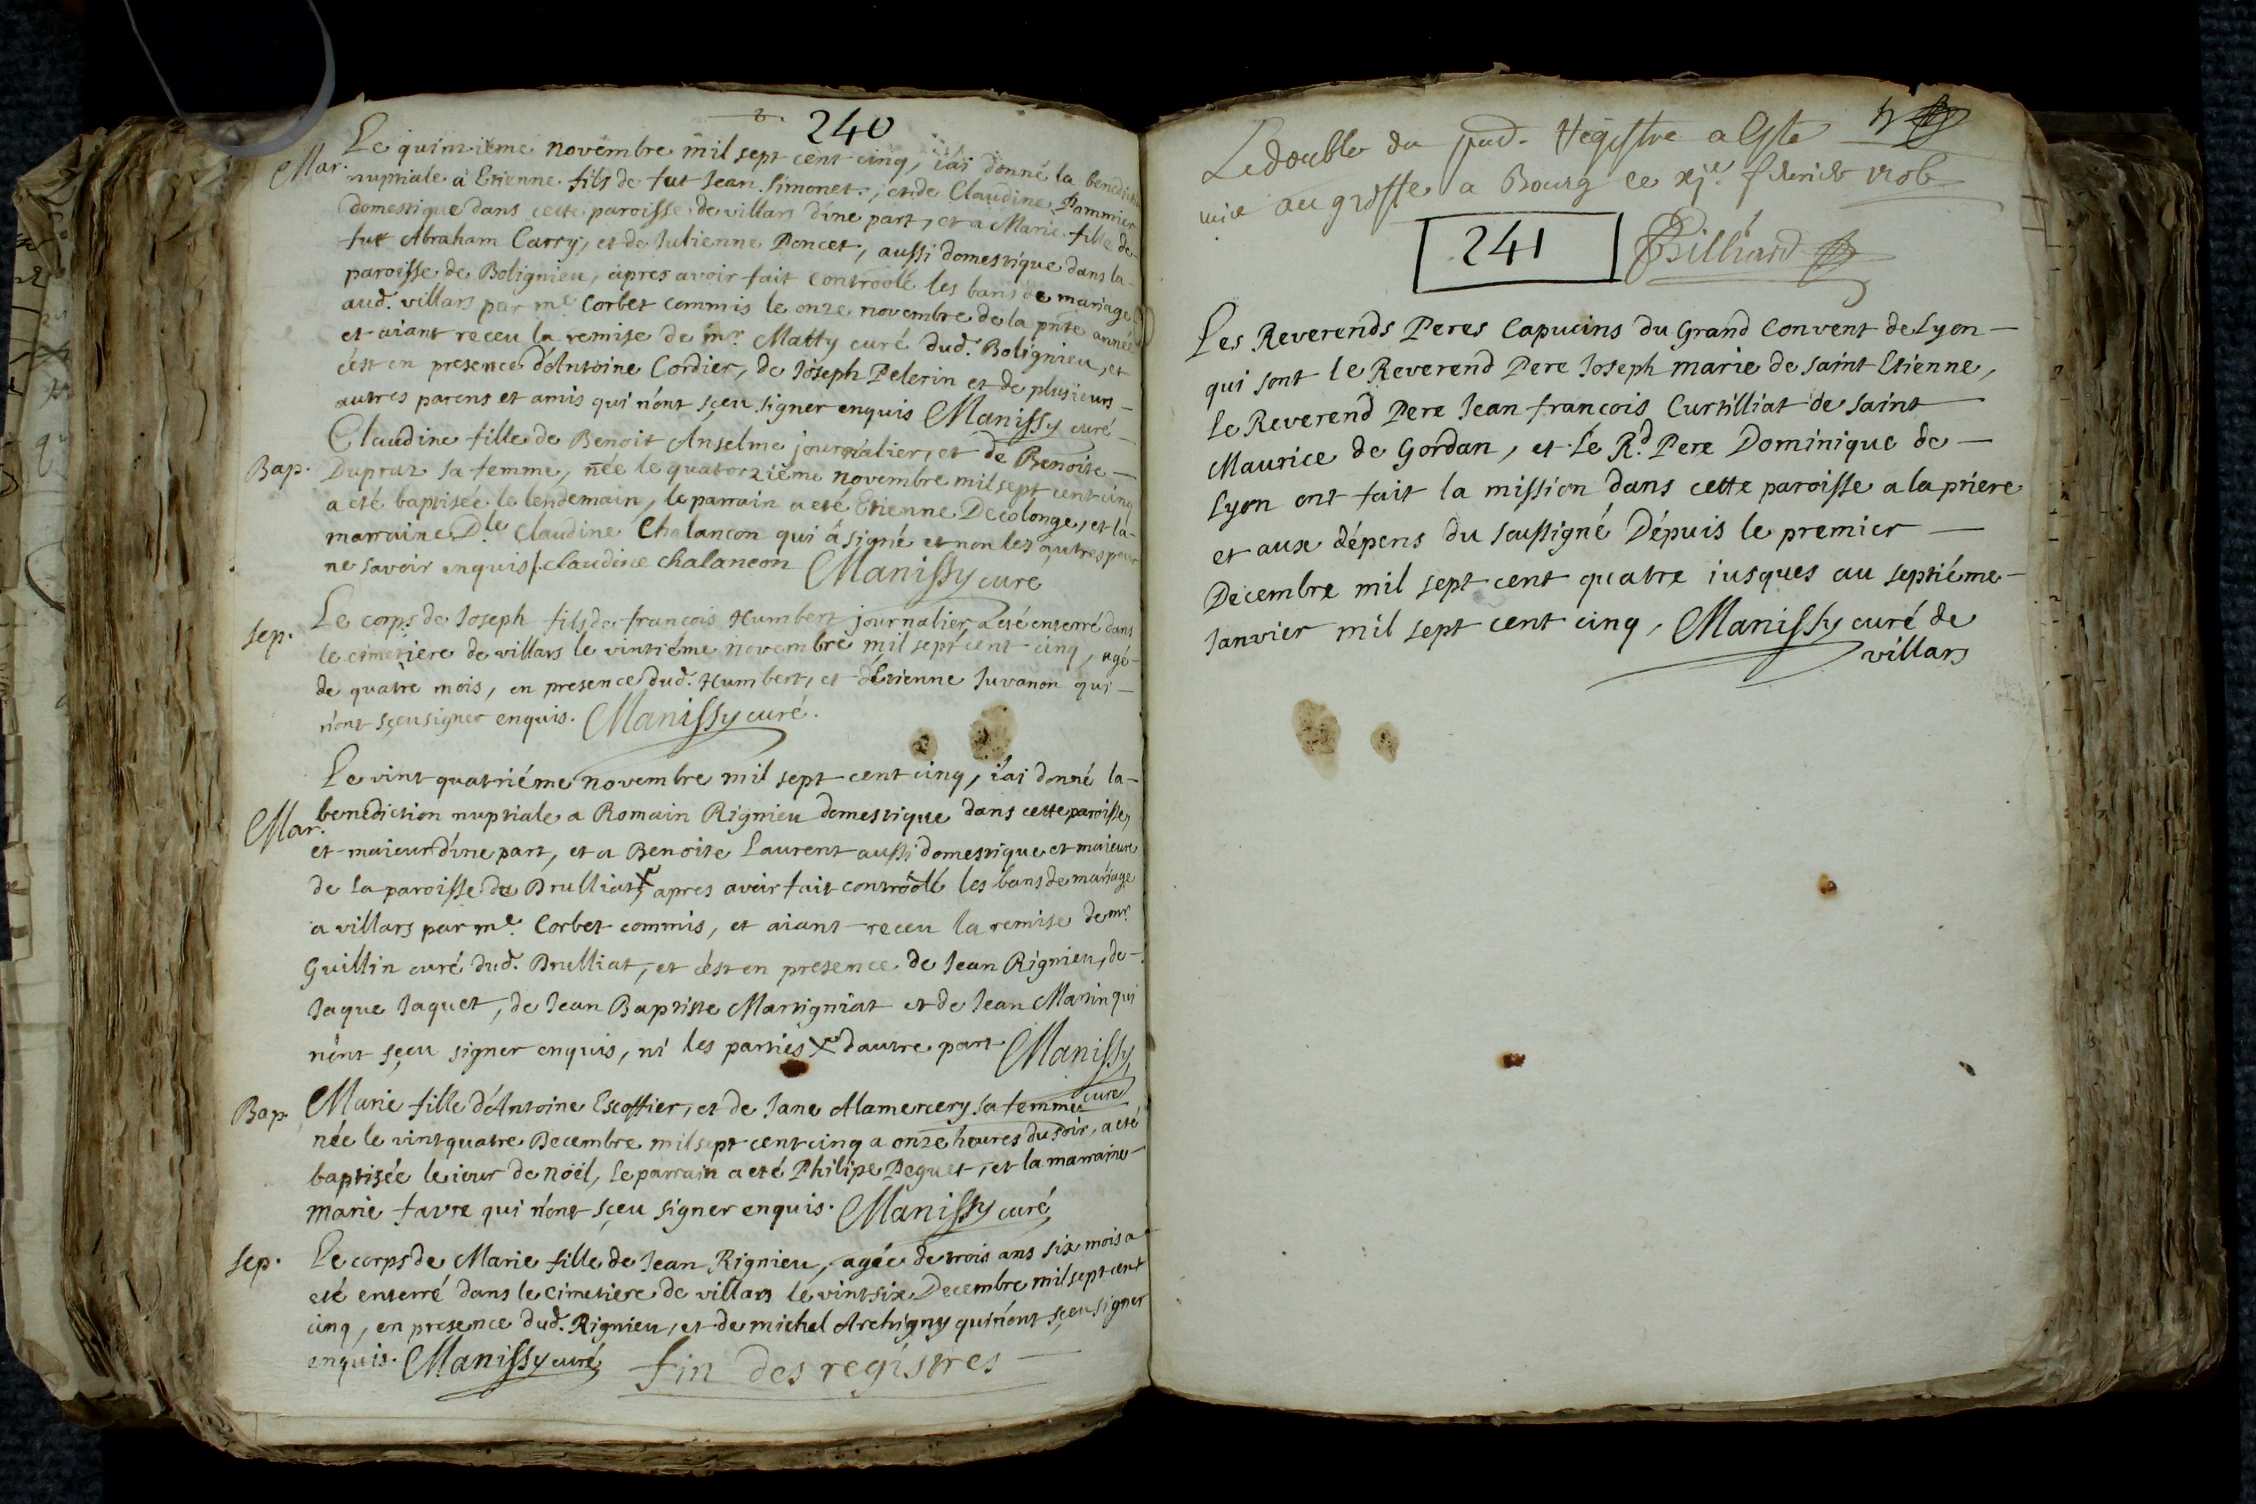 240
Mar. Le quinzième novembre mil sept cent cinq, i'ai donné la benediction
nuptiale a Etienne fils de fut Jean Simonet, et de Claudine Pommier
domestique dans cette paroisse de villars d'ine part, et a Marie fille de
fut Abraham Carry, et de Julienne Poncet, aussi domestique dans la
paroisse de Bolignieu, apres avoir fait controolé les bans de mariage
aud. villars par me. Corbet commis le onze novembre de la pnte année
et aiant receu la remise de mr. Matty curé dud. Bolignieu, et
c'est en presence d'Antoine Cordier, de Joseph Pelerin et de plusieurs
autres parens et amis qui n'ont sçeu signer enquis Manissy curé
Claudine fille de Benoit Anselme journalier, et de Benoite
Bap. Dupraz sa femme, née le quatorzième novembre mil sept cent cinq
a eté baptisée le lendemain, le parrain a eté Etienne Decolonge, et la
marraine Dle. Claudine Chalancon qui a signé et non les autres pour
ne savoir enquis. claudine chalancon Manissy curé
sep. Le corps de Joseph fils de francois Humbert journalier a eté enterré dans
le cimetiere de villars le vintième novembre mil sept cent cinq, agé
de quatre mois, en presence dud. Humbert, et d'Etienne Juvanon qui
n'ont sçeu signer enquis. Manissy curé.
Le vint quatrième novembre mil sept cent cinq, i'ai donné la
Mar. benediction nuptiale a Romain Rignieu domestique dans cette paroisse,
et maieur d'ine part, et a Benoite Laurent aussi domestique et maieure
de la paroisse de Brulliat, x apres avoir fait controolé les bans de mariage
a villars par me. Corbet commis, et aiant receu la remise de mr.
Guillin curé dud. Brulliat, et c'est en presence de Jean Rignieu, de
Jaque Jaquet, de Jean Baptiste Martigniat et de Jean Martin qui
n'ont sçeu signer enquis, ni les parties x d'autre part Manissy
curé
Bap. Marie fille d'Antoine Escoffier, et de Jane Alamercery sa femme
née le vint quatre Decembre mil sept cent cinq a onze heures du soir, a eté
baptisée le iour de noël, le parrain a eté Philipe Peguet, et la marraine
marie favre qui n'ont sçeu signer enquis. Manissy curé
sep. Le corps de Marie fille de Jean Rignieu, agée de trois ans six mois a
eté enterré dans le cimetiere de villars le vint six Decembre mil sept cent
cinq, en presence dud. Rignieu, et de michel Archigny qui n'ont sçeu signer
enquis. Manissy curé fin des registres
Le double du Regestre a Esté
mis au greffe a Bourg ce xje. febvrier 1706
241
Billiard
Les Reverends Peres Capucins du Grand Convent de Lyon
qui sont le Reverend Pere Joseph marie de saint Etienne,
le Reverend Pere Jean francois Curtilliat de saint
Maurice de Gordan, et le Rd. Pere Dominique de
Lyon ont fait la mission dans cette paroisse a la priere
et aux dépens du soussigné Dépuis le premier
Decembre mil sept cent quatre iusques au septiéme
Janvier mil sept cent cinq, Manissy curé de
villars